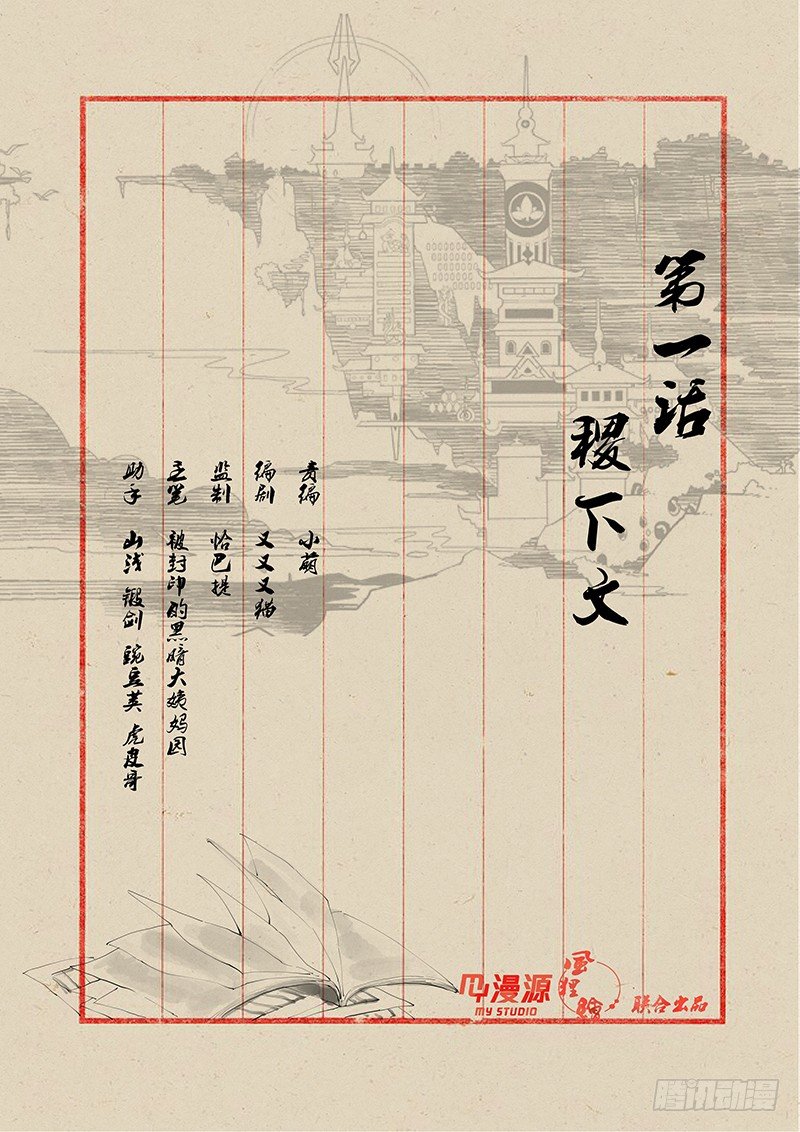 第一话
稷下文
责编 小萌
编剧 又又又猫
监制 恰巴提
主笔 被封印的黑暗大姨妈因
助手 山浅 锻剑 豌豆荚 虎皮哥
漫源
MY STUDIO
联合出品
腾讯动漫